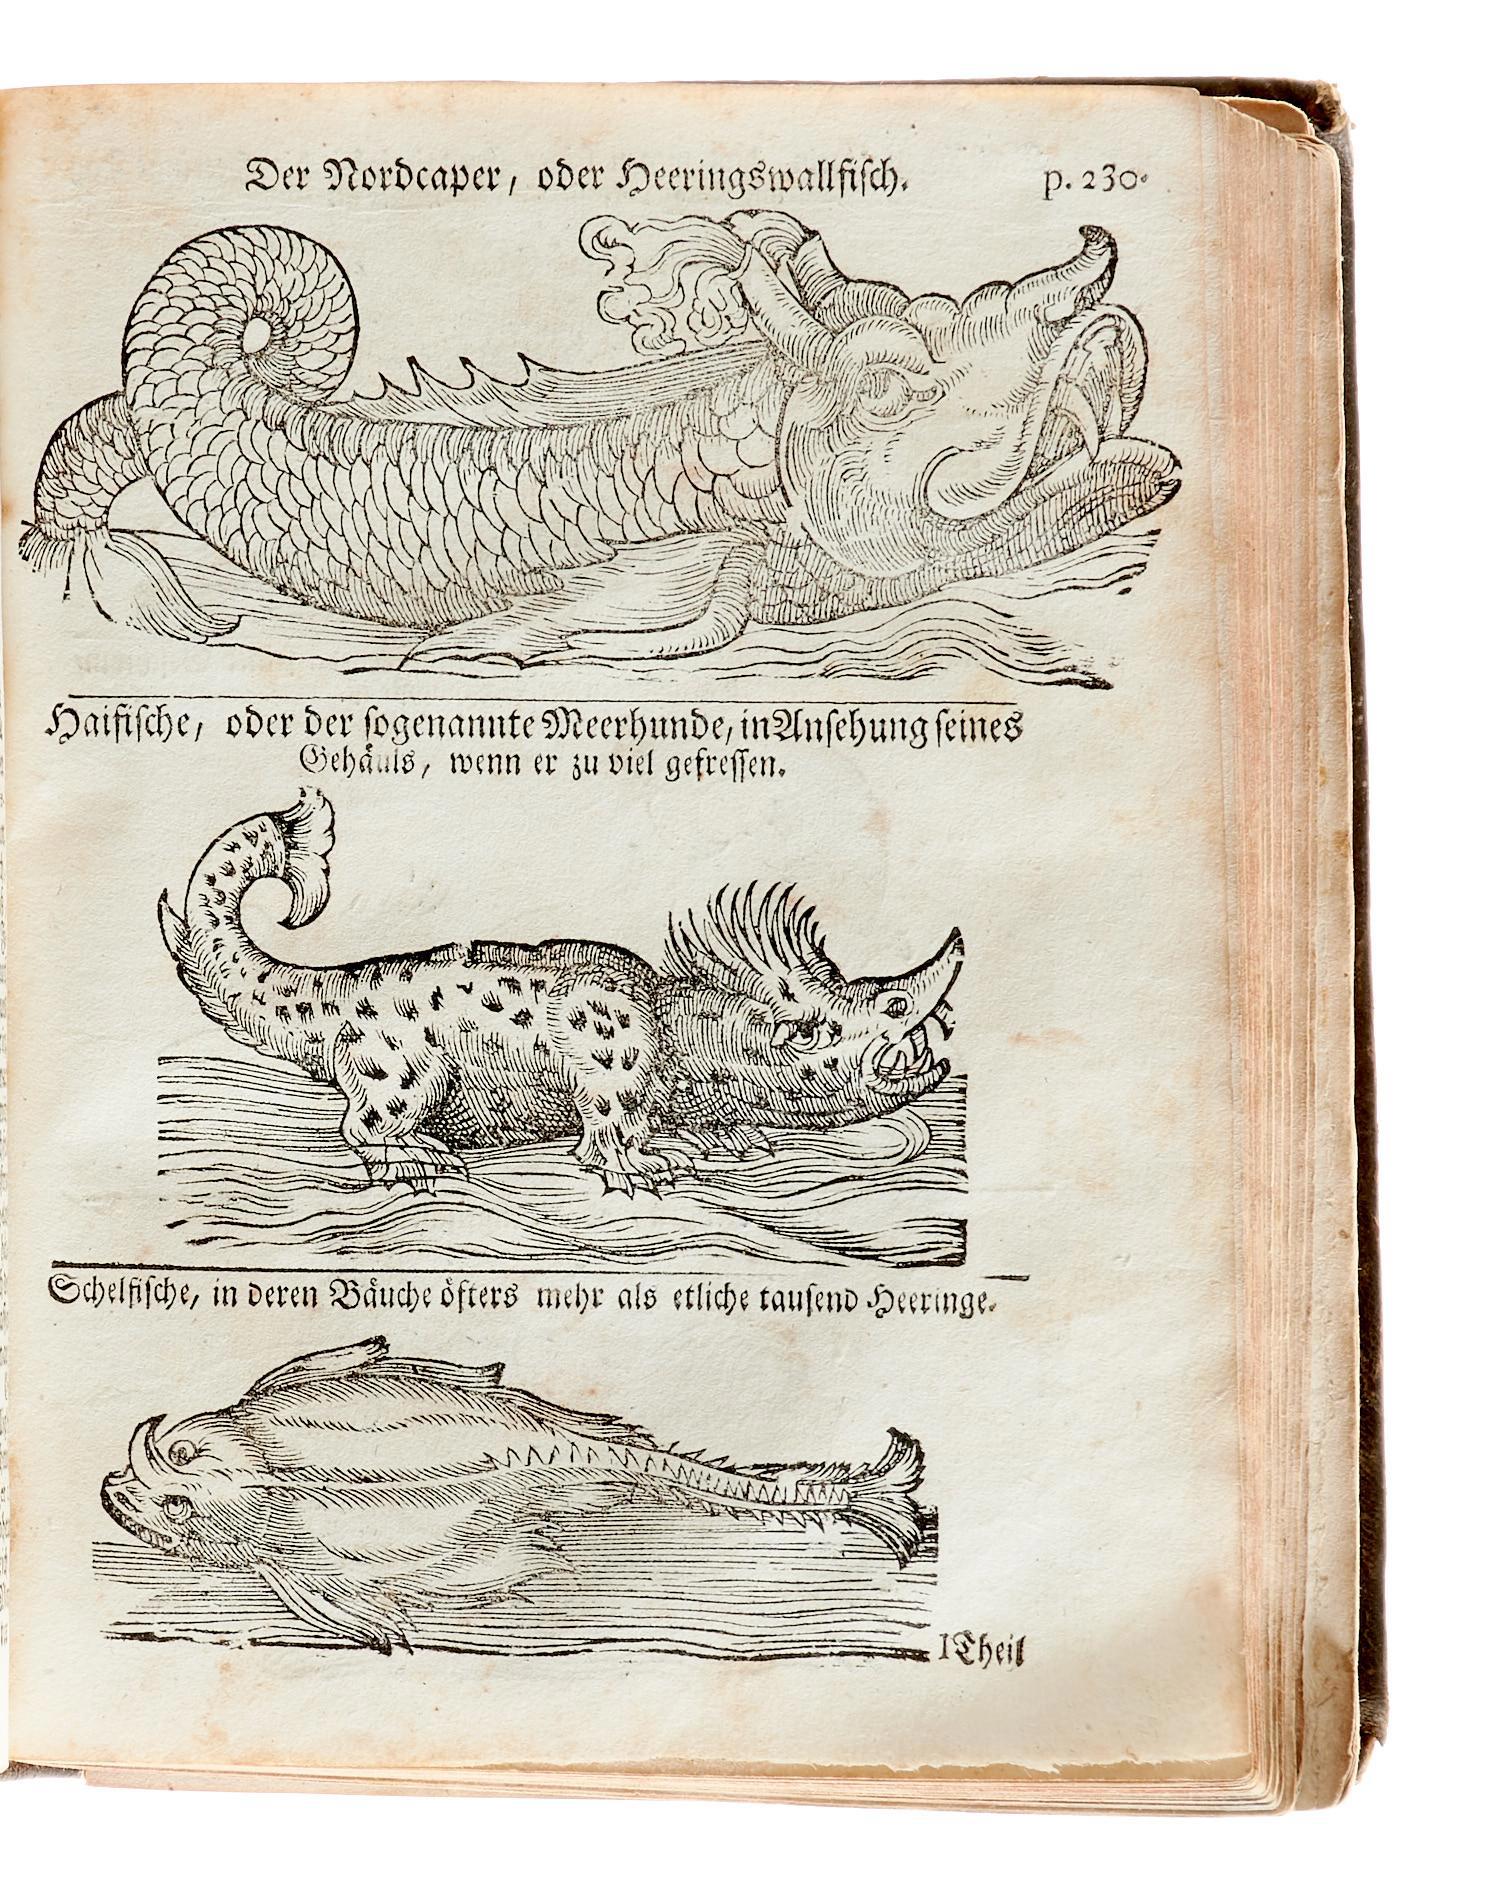 Der Nordcaper, oder Heeringswallfisch.
p. 230.
Haifische, oder der sogenannte Meerhunde, in Ansehung seines
Gehäuls, wenn er zu viel gefressen.
Schelfische, in deren Bäuche öfters mehr als etliche tausend Heeringe.
I Theil